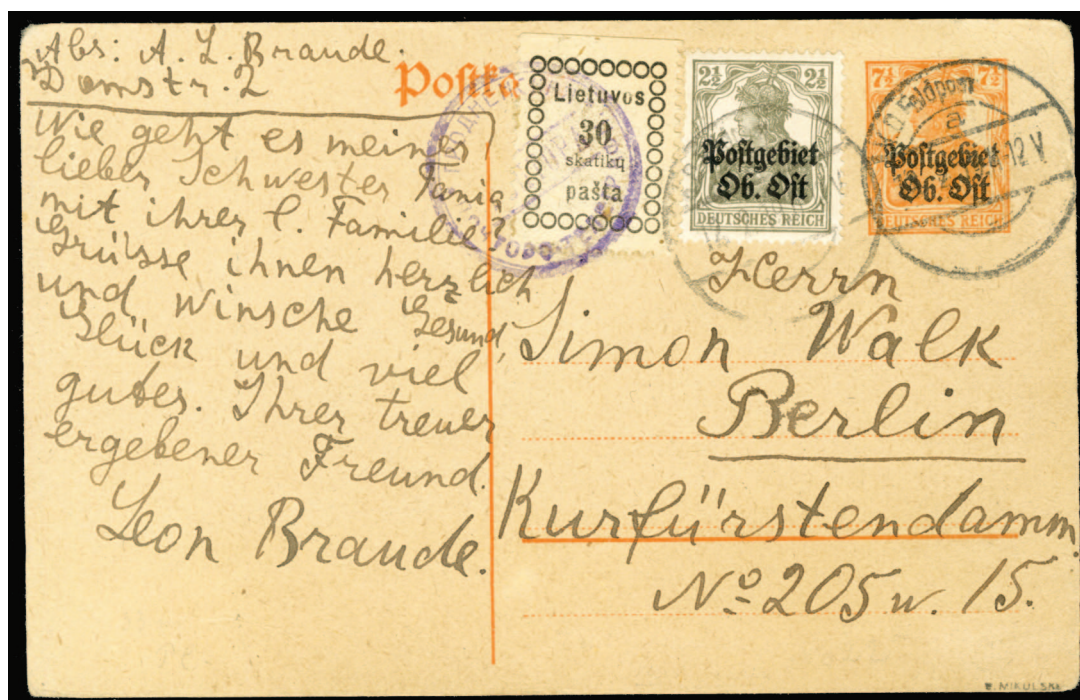 Abs: A. L. Braude.
Domstr. 2
Wie geht es meiner
lieber Schwester Tania
mit ihrer l. Familie?
Grüsse ihnen herzlich
und winsche Gesund,
Glück und viel
gutes. Ihrer treuer
ergebener Freund.
Leon Braude.
Postka
Lietuvos
30
skatikų
pašta
2½ 2½
Postgebiet
Ob. Ost
DEUTSCHES REICH
7½ 7½
Postgebiet
Ob. Ost
DEUTSCHES REICH
Feldpost
a
12 V
Herrn
Simon Walk
Berlin
Kurfürstendamm.
No 205 w. 15.